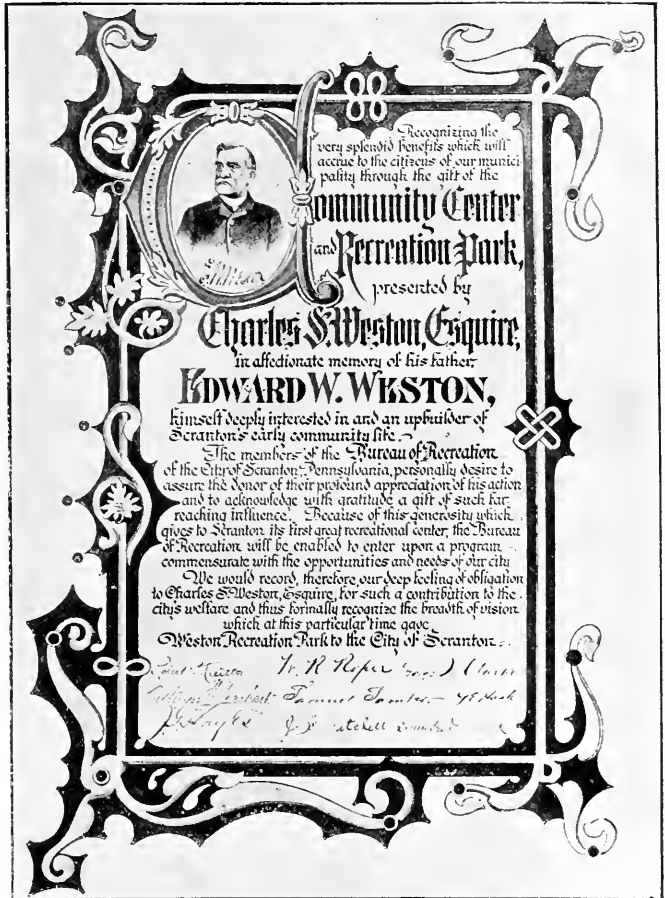 Recognizing the
very splendid benefits which will
accrue to the citizens of our munici
pality through the gift of the
Community Center
and Recreation Park,
presented by
Charles S. Weston, Esquire,
in affectionate memory of his father,
EDWARD W. WESTON,
himself deeply interested in and an upbuilder of
Scranton's early community life.
The members of the Bureau of Recreation
of the City of Scranton, Pennsylvania, personally desire to
assure the donor of their profound appreciation of his action
and to acknowledge with gratitude a gift of such far
reaching influence. Because of this generosity which
gives to Scranton its first great recreational center, the Bureau
of Recreation will be enabled to enter upon a program
commensurate with the opportunities and needs of our city
We would record, therefore, our deep feeling of obligation
to Charles S. Weston, Esquire, for such a contribution to the
city's welfare and thus formally recognize the breadth of vision
which at this particular time gave
Weston Recreation Park to the City of Scranton.
W. R. Roper
Samuel Samter
Hayes